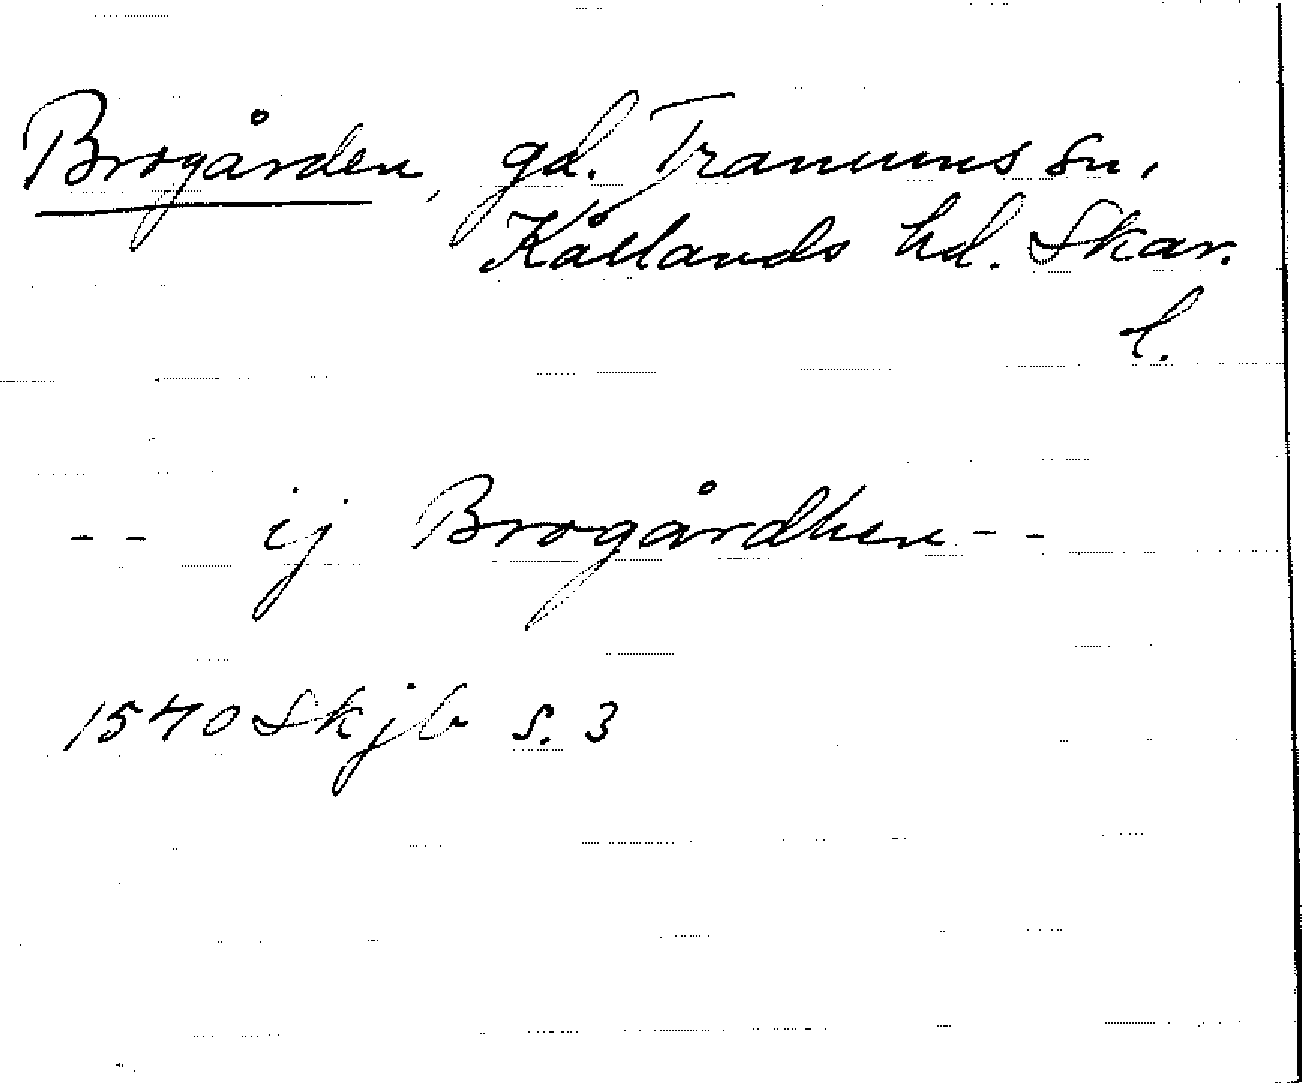 Brogården, gd. Tranums sn,
Kållands hd. Skar.
l.
-- ij Brogårdhen --
1540 Skjb s. 3